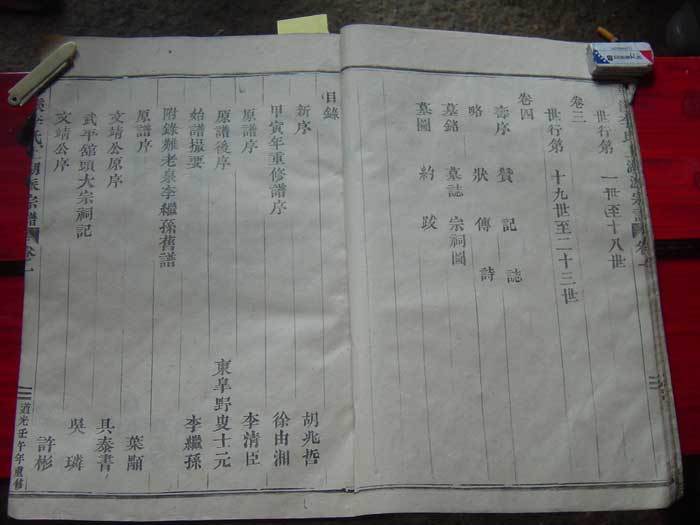 世行第 一世至十八世
卷三
世行第 十九世至二十三世
卷四
壽序 贊 記 誌
略 狀 傳 詩
墓銘 墓誌 宗祠圖
墓圖 約 跋
目錄
新序 胡兆哲
甲寅年重修譜序 徐由湘
原譜序 李清臣
原譜後序 東皐野叟士元
始譜撮要 李繼孫
附錄難老泉李繼孫舊譜
原譜序 葉顒
文靖公原序 具泰書
武平舘頭大宗祠記 吳璘
文靖公序 許彬
李氏 湖派宗譜 卷一
道光壬午年重修